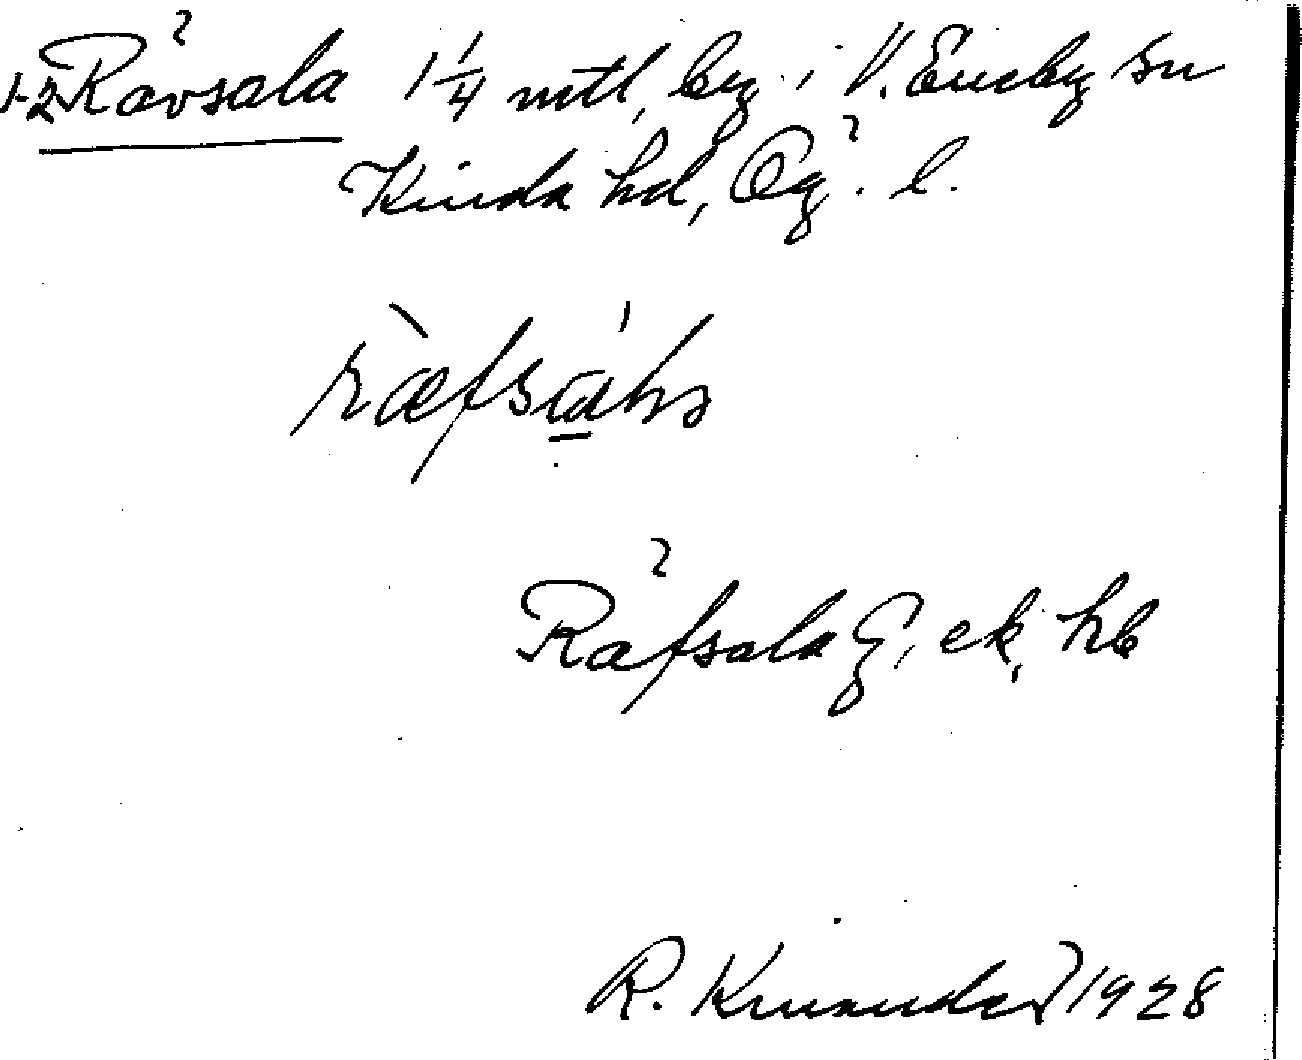 1-2 Rävsala 1 1/4 mtl, by i V. Eneby sn
Kinda hd, Ög. l.
Räfsala G, ek, hb
R. Kinander 1928